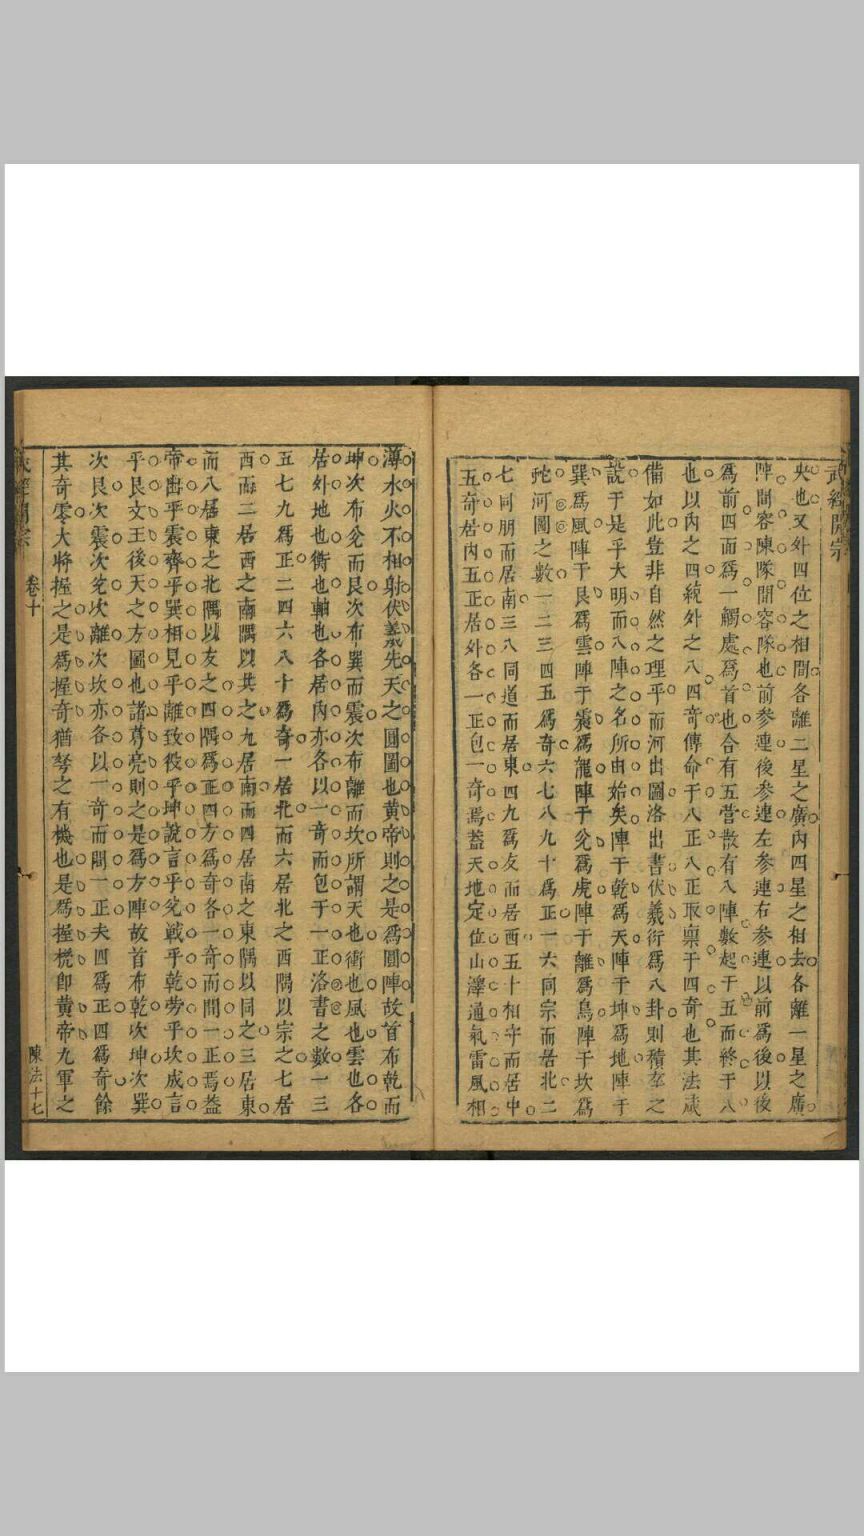 武經開宗
央也又外四位之相間各離二星之廣內四星之相去各離一星之廣
陣間容陳隊間容隊也前參連後參連左參連右參連以前為後以後
為前四面為一觸處為首也合有五營散有八陣數起于五而終于八
也以內之四統外之八四奇傳命于八正八正取稟于四奇也其法咸
備如此豈非自然之理乎而河出圖洛出書伏羲衍為八卦則積卒之
說于是乎大明而八陣之名所由始矣陣于乾為天陣于坤為地陣于
巽為風陣于艮為雲陣于震為龍陣于兌為虎陣于離為鳥陣于坎為
蛇河圖之數一二三四五為奇六七八九十為正一六同宗而居北二
七同朋而居南三八同道而居東四九為友而居西五十相守而居中
五奇居內五正居外各一正包一奇焉蓋天地定位山澤通氣雷風相
薄水火不相射伏羲先天之圓圖也黄帝則之是為圓陣故首布乾而
坤次布兌而艮次布巽而震次布離而坎所謂天也衝也風也雲也各
居外地也衡也軸也各居內亦各以一奇而包于一正洛書之數一三
五七九為正二四六八十為奇一居北而六居北之西隅以宗之七居
西而二居西之南隅以共之九居南而四居南之東隅以同之三居東
而八居東之北隅以友之四隅為正四方為奇各一奇而間一正焉蓋
帝出乎震齊乎巽相見乎離致役乎坤說言乎兌戰乎乾勞乎坎成言
乎艮文王後天之方圖也諸葛亮則之是為方陣故首布乾次坤次巽
次艮次震次兌次離次坎亦各以一奇而間一正夫四為正四為奇餘
其奇零大將握之是為握奇猶弩之有機也是為握機即黄帝九軍之
武經開宗 卷十 陳法十七